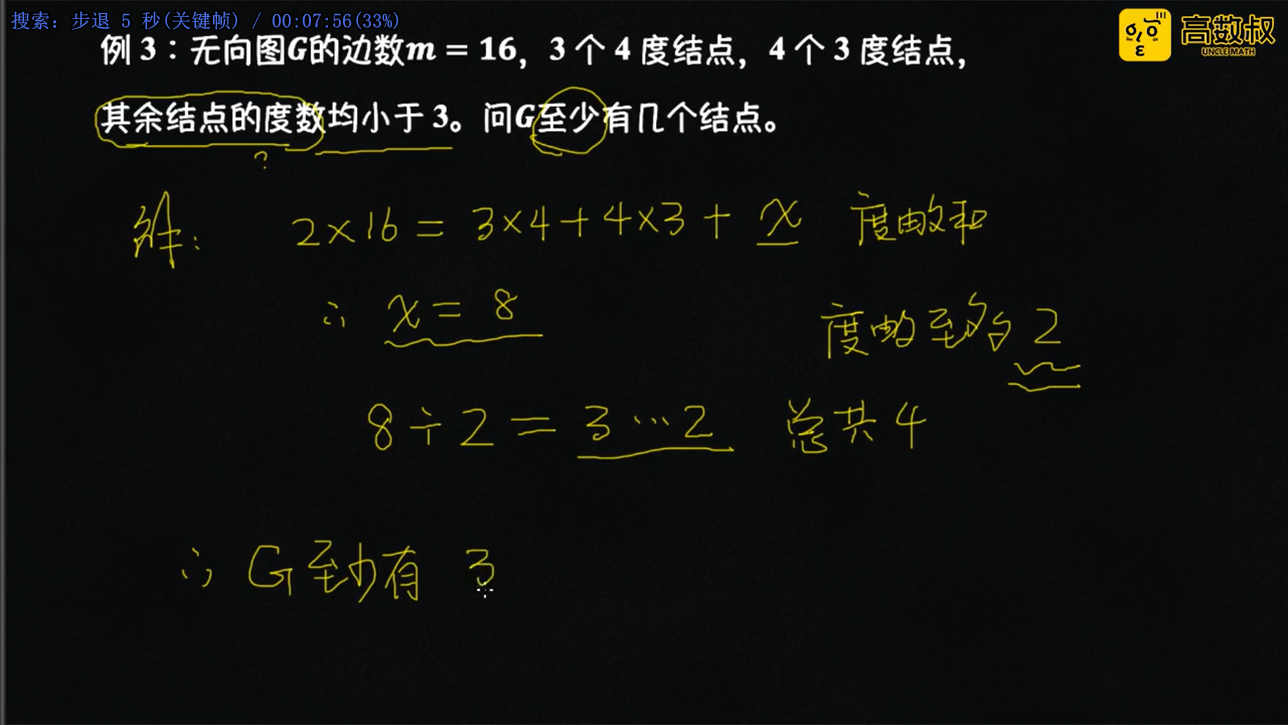 搜索: 步退 5 秒(关键帧) / 00:07:56(33%)
高数叔
UNCLE MATH
例 3：无向图G的边数m = 16，3 个 4 度结点，4 个 3 度结点，
其余结点的度数均小于 3。问G至少有几个结点。
?
解: 2×16 = 3×4+4×3+ x 度数和
∴ x = 8
度数至多 2
8÷2 = 3…2 总共4
∴ G至少有 3